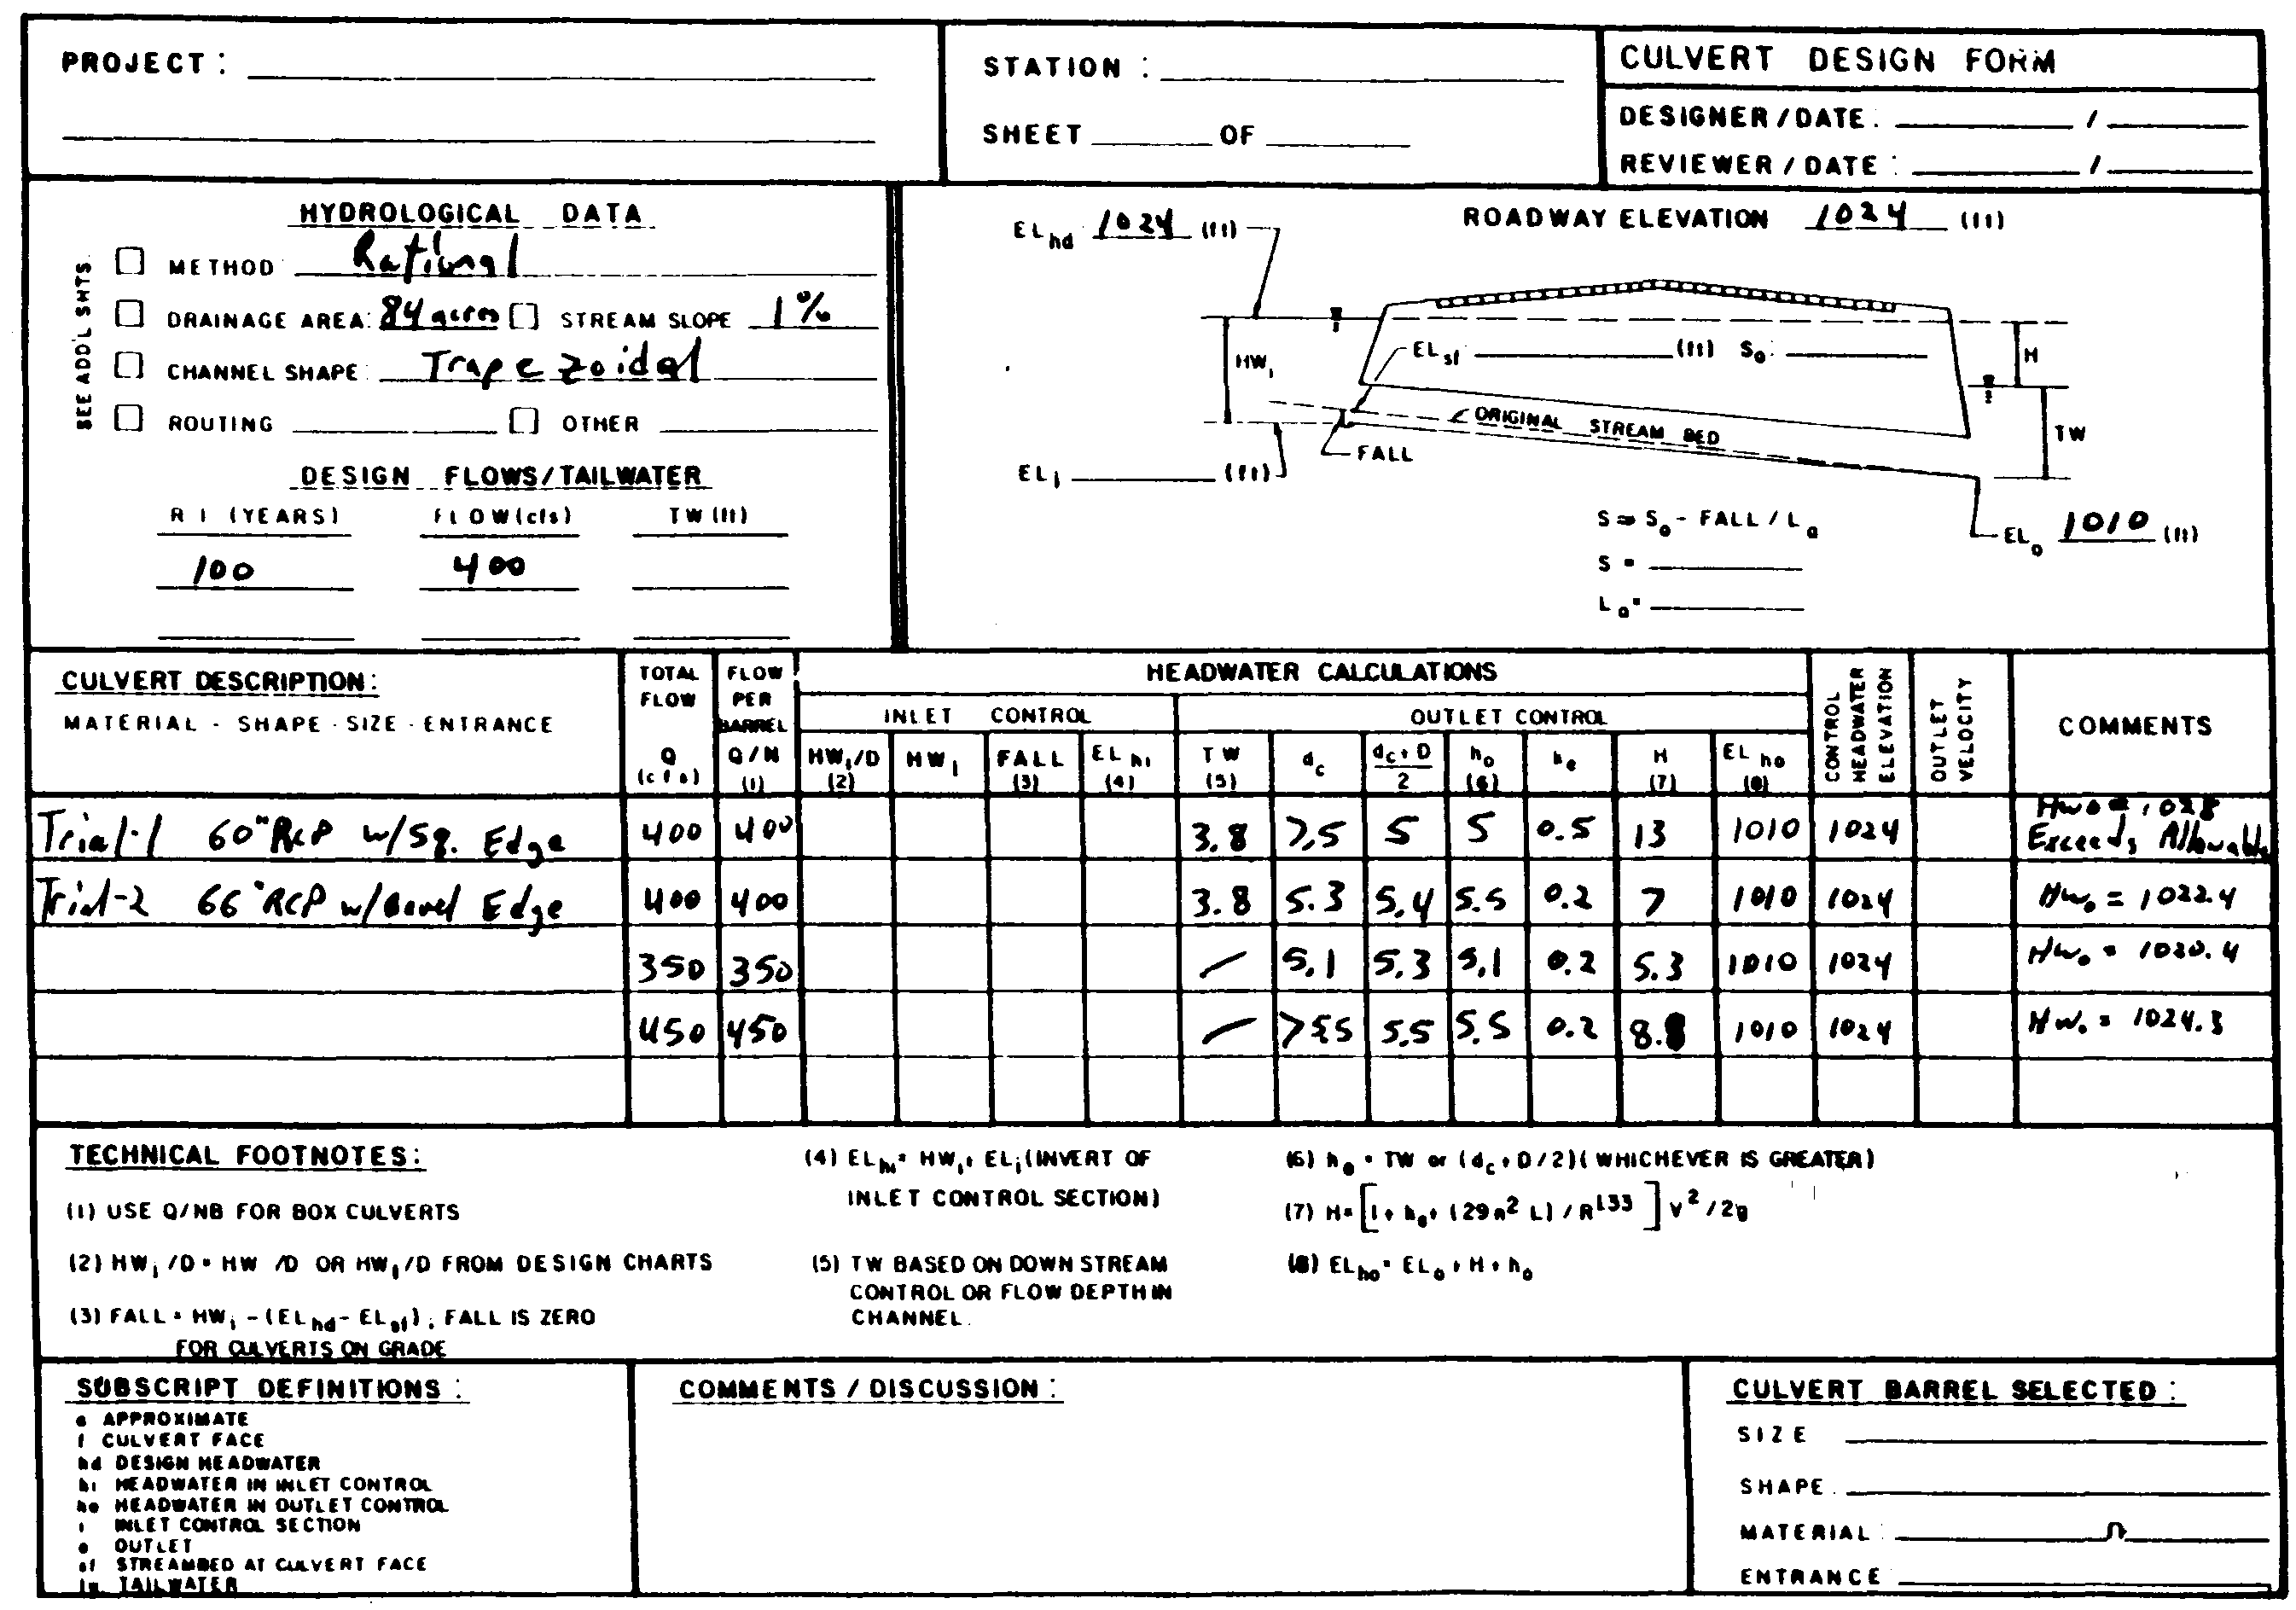 PROJECT :
STATION :
SHEET OF
CULVERT DESIGN FORM
DESIGNER / DATE : /
REVIEWER / DATE : /
HYDROLOGICAL DATA
SEE ADD'L SHTS.
METHOD Rational
DRAINAGE AREA: 84 acres STREAM SLOPE 1%
CHANNEL SHAPE: Trapezoidal
ROUTING OTHER
DESIGN FLOWS/TAILWATER
R I (YEARS) FLOW(cfs) TW (ft)
100 400
EL hd 1024 (ft)
ROADWAY ELEVATION 1024 (ft)
HW i
EL sf (ft) So:
H
TW
ORIGINAL STREAM BED
FALL
EL i (ft)
S ≈ So - FALL / La
S =
La =
ELo 1010 (ft)
CULVERT DESCRIPTION:
MATERIAL - SHAPE - SIZE - ENTRANCE
TOTAL FLOW Q (cfs)
FLOW PER BARREL Q/N (1)
HEADWATER CALCULATIONS
INLET CONTROL
OUTLET CONTROL
HWi/D (2) HWi FALL (3) EL hi (4) TW (5) dc dc+D/2 ho (6) ke H (7) EL ho (8)
CONTROL HEADWATER ELEVATION
OUTLET VELOCITY
COMMENTS
Trial-1 60" RCP w/Sq. Edge 400 400 3.8 >5 5 5 0.5 13 1010 1024 Hwo = 1028 Exceeds Allowable
Trial-2 66" RCP w/Bevel Edge 400 400 3.8 5.3 5.4 5.5 0.2 7 1010 1024 Hwo = 1022.4
350 350 — 5.1 5.3 5.1 0.2 5.3 1010 1024 Hwo = 1020.4
450 450 — >5.5 5.5 5.5 0.2 8.8 1010 1024 Hwo = 1024.3
TECHNICAL FOOTNOTES:
(1) USE Q/NB FOR BOX CULVERTS
(2) HWi /D = HW /D OR HWi/D FROM DESIGN CHARTS
(3) FALL = HWi - (EL hd - EL sf); FALL IS ZERO
FOR CULVERTS ON GRADE
(4) EL hi = HWi + ELi (INVERT OF
INLET CONTROL SECTION)
(5) TW BASED ON DOWN STREAM
CONTROL OR FLOW DEPTH IN
CHANNEL.
(6) ho = TW or (dc + D/2)( WHICHEVER IS GREATER)
(7) H = [1 + ke + (29n² L) / R^1.33] V² / 2g
(8) EL ho = ELo + H + ho
SUBSCRIPT DEFINITIONS :
a APPROXIMATE
f CULVERT FACE
hd DESIGN HEADWATER
hi HEADWATER IN INLET CONTROL
ho HEADWATER IN OUTLET CONTROL
i INLET CONTROL SECTION
o OUTLET
sf STREAMBED AT CULVERT FACE
tw TAILWATER
COMMENTS / DISCUSSION :
CULVERT BARREL SELECTED :
SIZE
SHAPE
MATERIAL n
ENTRANCE